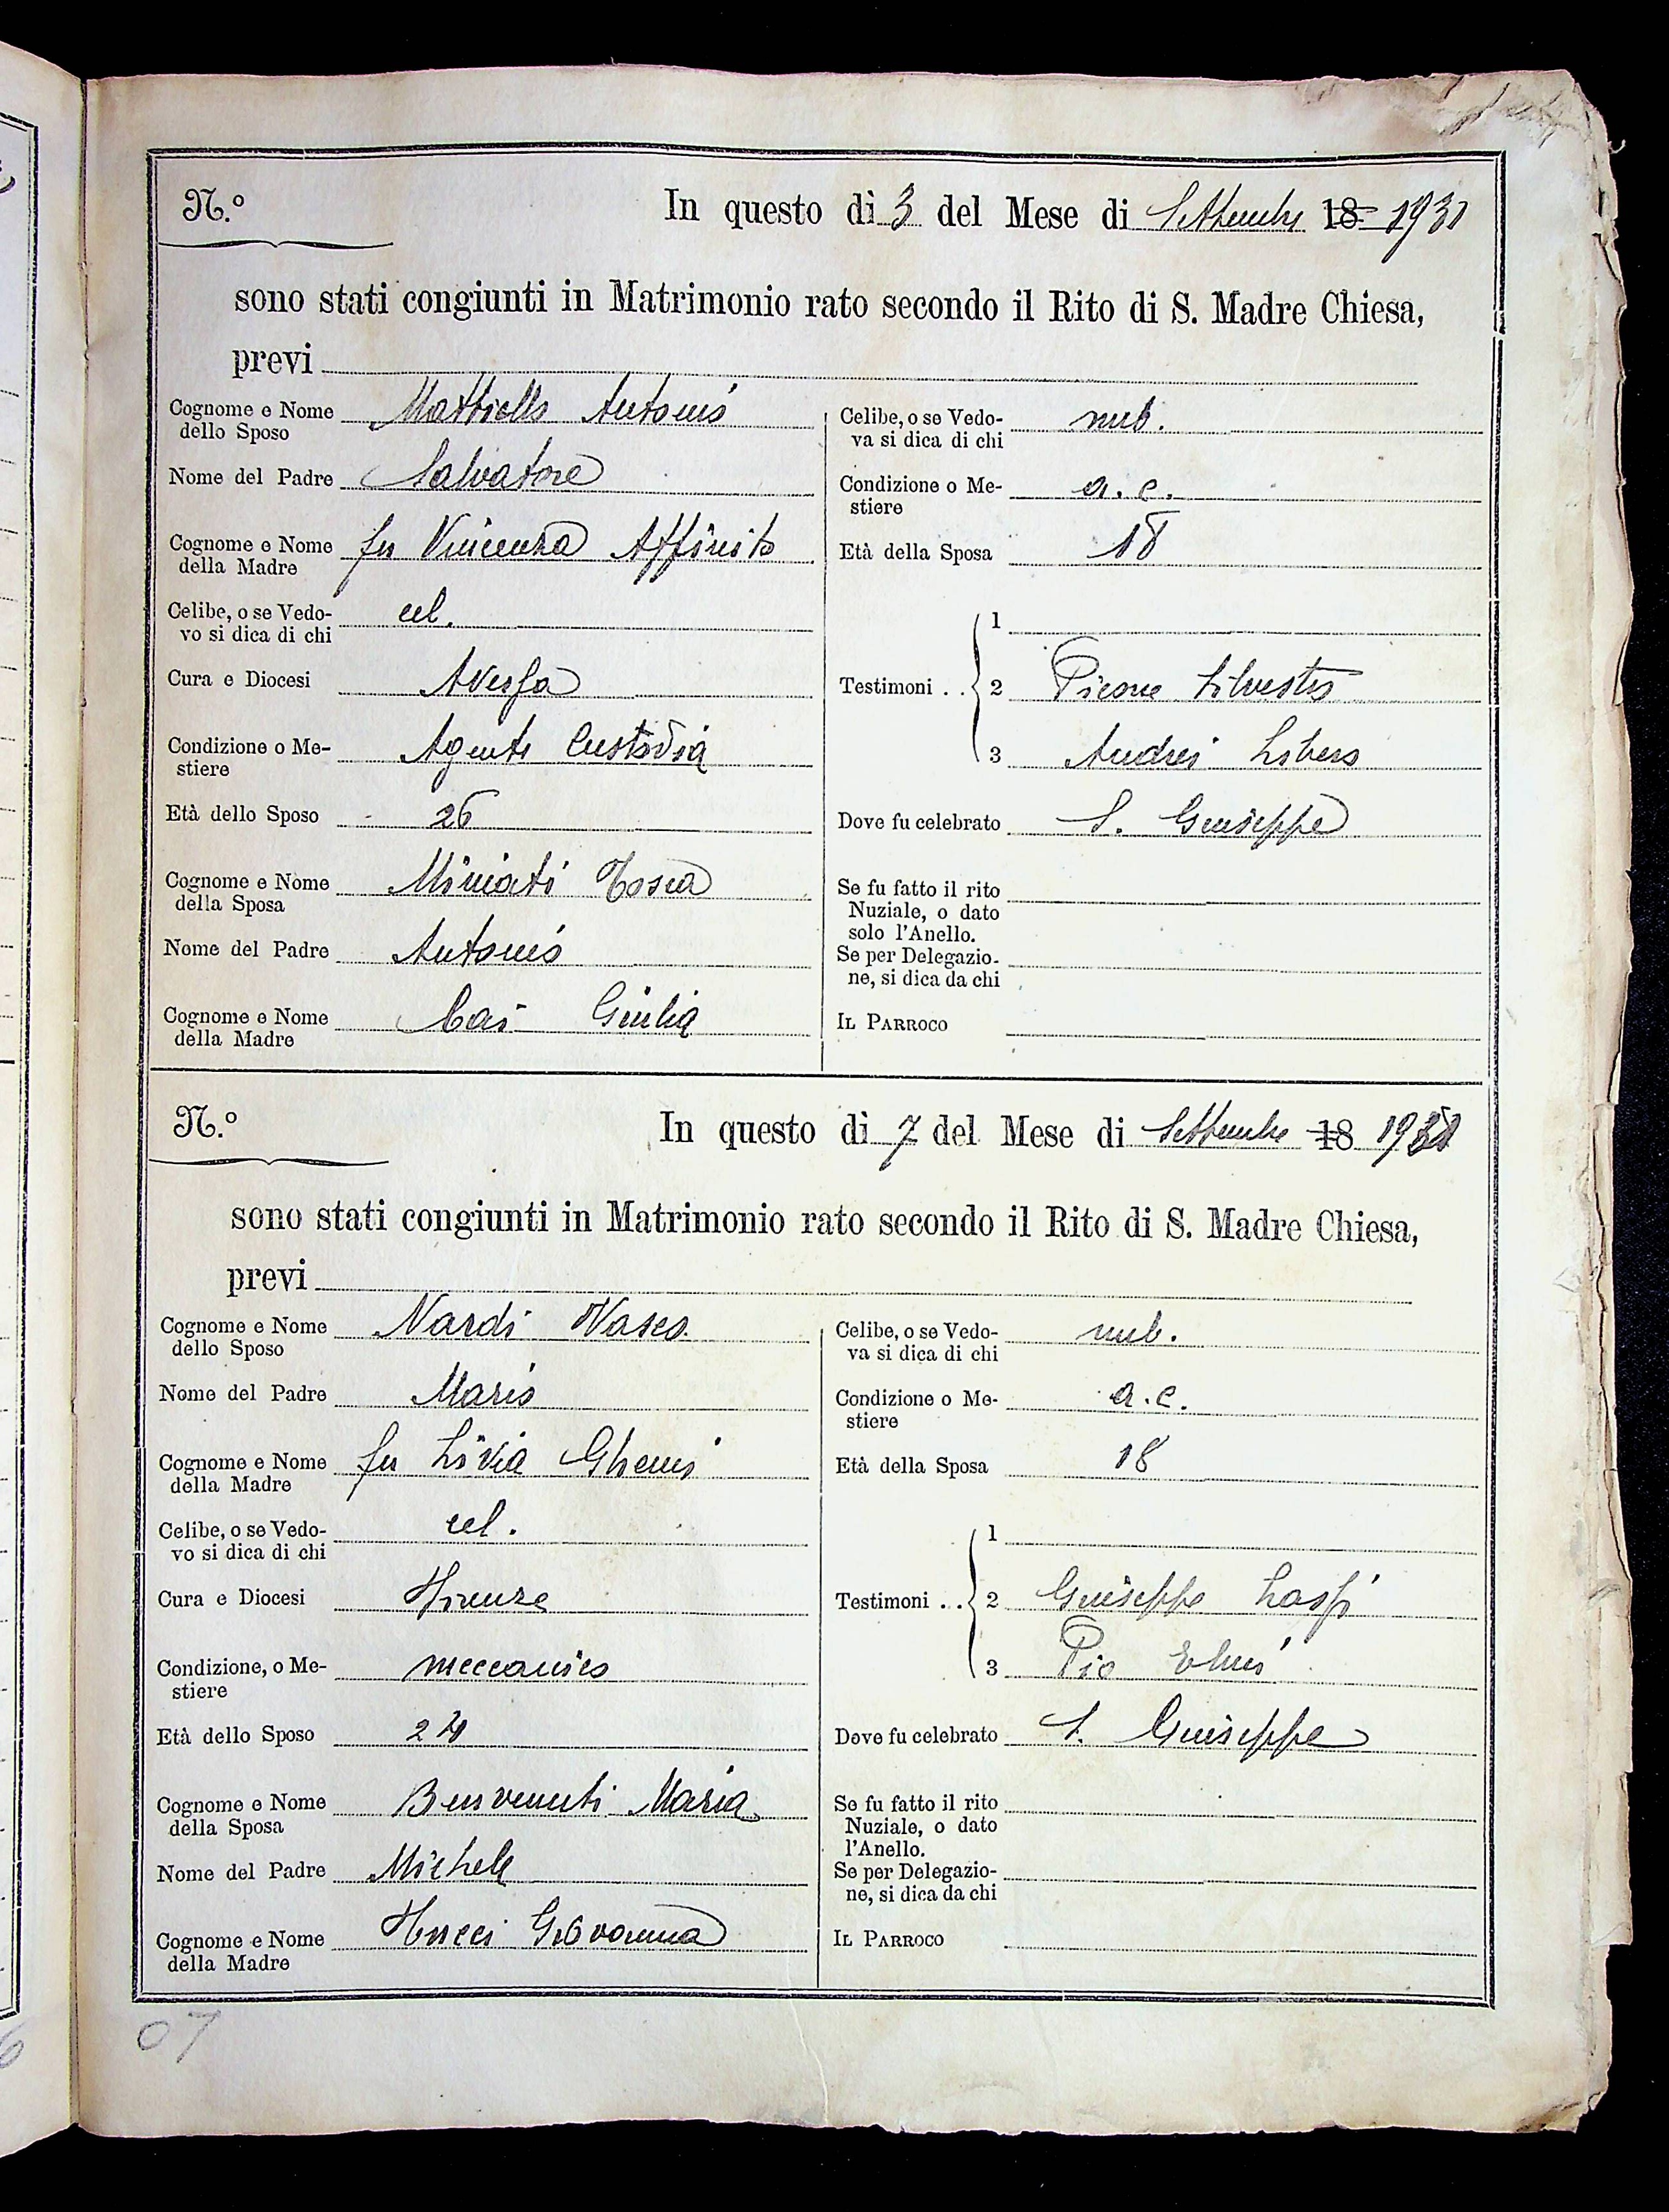 N.º In questo dì 3 del Mese di Settembre 18 1931
sono stati congiunti in Matrimonio rato secondo il Rito di S. Madre Chiesa,
previ
Cognome e Nome dello Sposo Mattiello Antonio
Nome del Padre Salvatore
Cognome e Nome della Madre fu Vincenza Affinito
Celibe, o se Vedo-
vo si dica di chi cel.
Cura e Diocesi Aversa
Condizione o Me-
stiere Agente Custodia
Età dello Sposo 26
Cognome e Nome della Sposa Miniati Tosca
Nome del Padre Antonio
Cognome e Nome della Madre Cai Giulia
Celibe, o se Vedo-
va si dica di chi nub.
Condizione o Me-
stiere a. c.
Età della Sposa 18
Testimoni . . 1
2 Picone Silvestro
3 Andrei Libero
Dove fu celebrato S. Giuseppe
Se fu fatto il rito
Nuziale, o dato
solo l'Anello.
Se per Delegazio-
ne, si dica da chi
IL PARROCO
N.º In questo dì 7 del Mese di Settembre 18
sono stati congiunti in Matrimonio rato secondo il Rito di S. Madre Chiesa,
previ
Cognome e Nome dello Sposo Nardi Vasco
Nome del Padre Mario
Cognome e Nome della Madre fu Livia
Celibe, o se Vedo-
vo si dica di chi cel.
Cura e Diocesi Firenze
Condizione, o Me-
stiere meccanico
Età dello Sposo
Cognome e Nome della Sposa Benvenuti Maria
Nome del Padre Michele
Cognome e Nome della Madre Giovanna
Celibe, o se Vedo-
va si dica di chi nub.
Condizione o Me-
stiere a. c.
Età della Sposa 18
Testimoni . . 1
2 Giuseppe
3 Pio
Dove fu celebrato S. Giuseppe
Se fu fatto il rito
Nuziale, o dato
l'Anello.
Se per Delegazio-
ne, si dica da chi
IL PARROCO
07